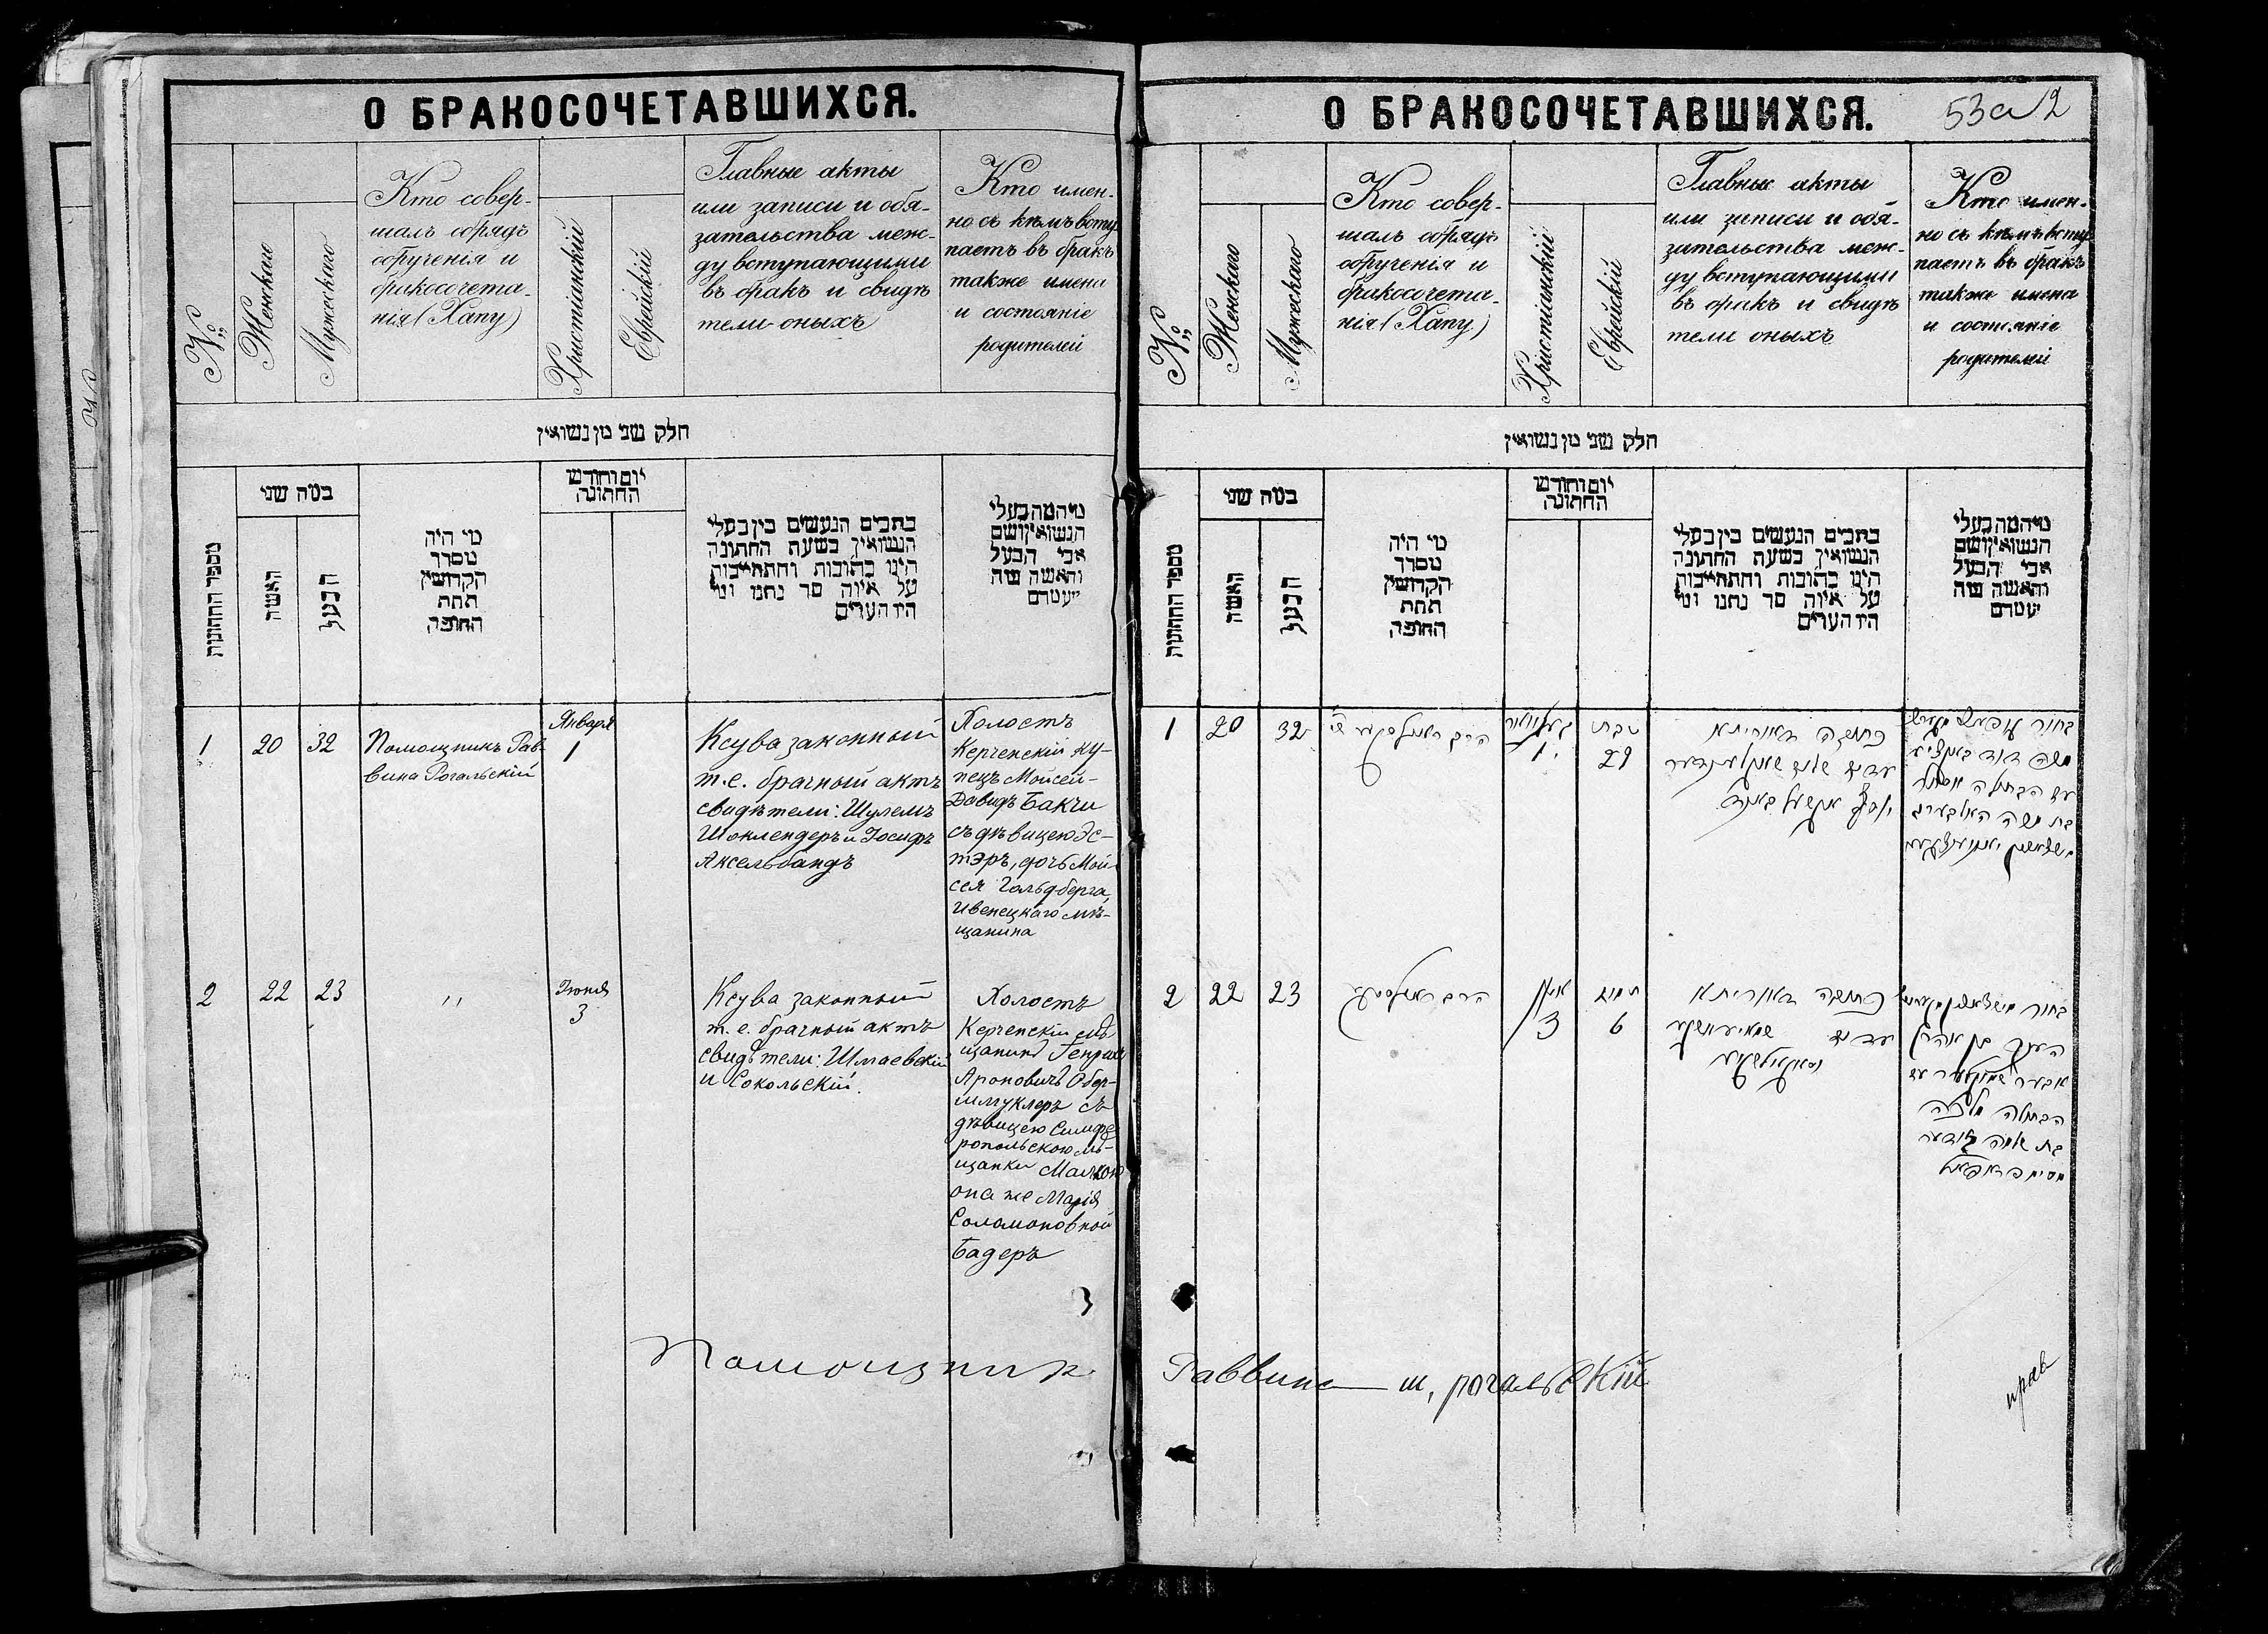 О БРАКОСОЧЕТАВШИХСЯ.
№
Женскаго
Мужескаго
Кто совер-
шалъ обрядъ
обрученія и
бракосочета-
нія (Хапу)
Христіанскій
Еврейскій
Главные акты
или записи и обя-
зательства меж-
ду вступающими
въ бракъ и свидѣ
тели оныхъ
Кто имен-
но съ кѣмъ всту
паетъ въ бракъ
также имена
и состояніе
родителей
חלק שני מן נשואין
מספר החתונות
כמה שני
האשה
הבעל
מי היה
מסדר
הקדושין
תחת
החופה
יום וחודש
החתונה
כתבים הנעשים בין בעלי
הנשואין בשעת החתונה
היינו כתובות והתחייבות
על איזה סך נתנו ומי
היו העדים
מי המה בעלי
הנשואין ושם
אבי הבעל
והאשה ומה
מעמדם
1
20
32
Помощникъ Рав-
вина Рогальскій
Января
1
Ксува законный
т.е. брачный актъ
свидѣтели: Шулемъ
Шоклендеръ и Іосифъ
Аксельбандъ
Холостъ
Керченскій ку-
пецъ Мойсей-
Давидъ Бакчи
съ дѣвицею Эс-
тэръ, дочь Мой-
сея Гольдберга,
Ивенецкаго мѣ-
щанина
2
22
23
,,
Іюня
3
Ксува законный
т. е. брачный актъ
свидѣтели: Шмаевскій
и Сокольскій.
Холостъ
Керченскій мѣ
щанинъ Генрихъ
Ароновичъ Обер-
шмуклеръ съ
дѣвицею Симфе
ропольскою мѣ-
щанки Малкою
она же Марія
Соломоновной
Бадеръ
Помощник
О БРАКОСОЧЕТАВШИХСЯ.
53а 2
№
Женскаго
Мужескаго
Кто совер-
шалъ обрядъ
обрученія и
бракосочета-
нія (Хапу)
Христіанскій
Еврейскій
Главные акты
или записи и обя-
зательства меж-
ду вступающими
въ бракъ и свидѣ
тели оныхъ
Кто имен-
но съ кѣмъ всту
паетъ въ бракъ
также имена
и состояніе
родителей
חלק שני מן נשואין
מספר החתונות
כמה שני
האשה
הבעל
מי היה
מסדר
הקדושין
תחת
החופה
יום וחודש
החתונה
כתבים הנעשים בין בעלי
הנשואין בשעת החתונה
היינו כתובות והתחייבות
על איזה סך נתנו ומי
היו העדים
מי המה בעלי
הנשואין ושם
אבי הבעל
והאשה ומה
מעמדם
1
20
32
הרב ראגאלסקי
יאנוואר
1
טבת
29
כתובה דאורייתא
עדים
בחור
משה דוד באקצי
עם הבתולה אסתר
בת משה גאלדבערג
2
22
23
הרב ראגאלסקי
יוני
3
תמוז
6
כתובה דאורייתא
עדים שמאיעווסקי
בחור
העניך בן אהרן
אבערשמוקלער עם
הבתולה מלכה
בת שלמה באדער
Раввина ш, рогальскій